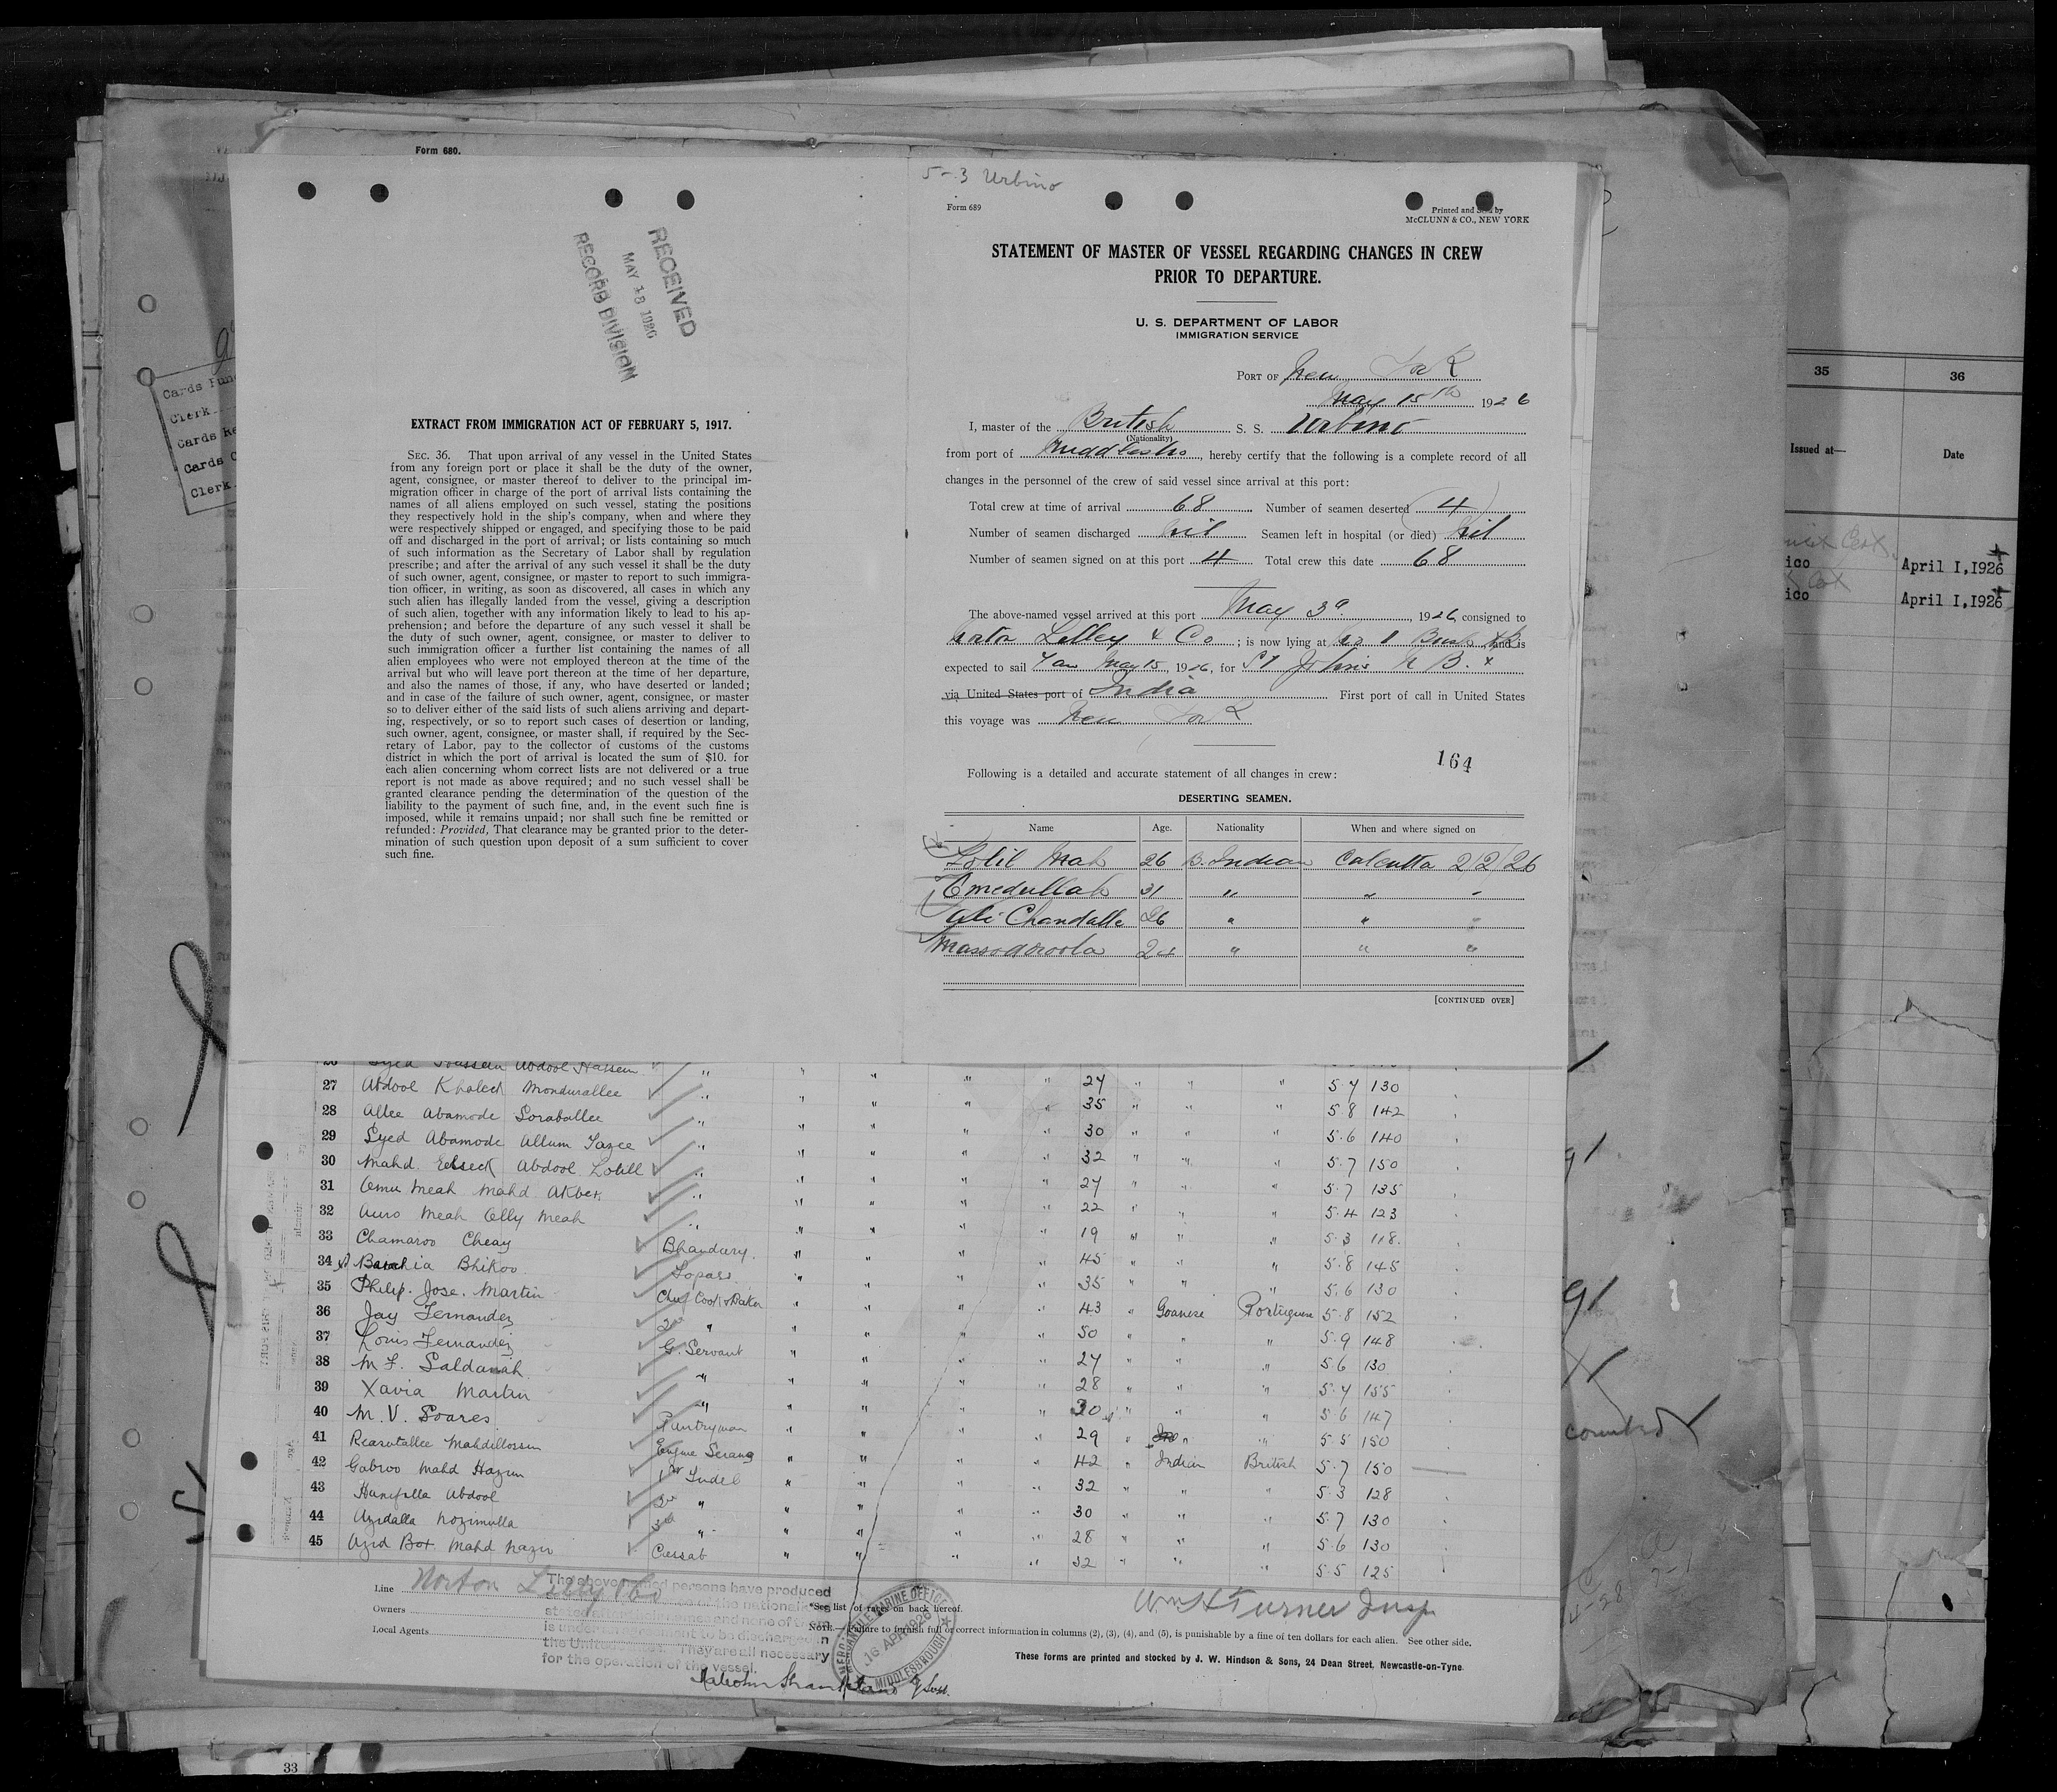 Form 680.
5-3 Urbino
Form 689
Printed and Sold by
McCLUNN & CO., NEW YORK
RECEIVED
MAY 18 1926
RECORD DIVISION
EXTRACT FROM IMMIGRATION ACT OF FEBRUARY 5, 1917.
SEC. 36. That upon arrival of any vessel in the United States
from any foreign port or place it shall be the duty of the owner,
agent, consignee, or master thereof to deliver to the principal im-
migration officer in charge of the port of arrival lists containing the
names of all aliens employed on such vessel, stating the positions
they respectively hold in the ship's company, when and where they
were respectively shipped or engaged, and specifying those to be paid
off and discharged in the port of arrival; or lists containing so much
of such information as the Secretary of Labor shall by regulation
prescribe; and after the arrival of any such vessel it shall be the duty
of such owner, agent, consignee, or master to report to such immigra-
tion officer, in writing, as soon as discovered, all cases in which any
such alien has illegally landed from the vessel, giving a description
of such alien, together with any information likely to lead to his ap-
prehension; and before the departure of any such vessel it shall be
the duty of such owner, agent, consignee, or master to deliver to
such immigration officer a further list containing the names of all
alien employees who were not employed thereon at the time of the
arrival but who will leave port thereon at the time of her departure,
and also the names of those, if any, who have deserted or landed;
and in case of the failure of such owner, agent, consignee, or master
so to deliver either of the said lists of such aliens arriving and depart-
ing, respectively, or so to report such cases of desertion or landing,
such owner, agent, consignee, or master shall, if required by the Sec-
retary of Labor, pay to the collector of customs of the customs
district in which the port of arrival is located the sum of $10. for
each alien concerning whom correct lists are not delivered or a true
report is not made as above required; and no such vessel shall be
granted clearance pending the determination of the question of the
liability to the payment of such fine, and, in the event such fine is
imposed, while it remains unpaid; nor shall such fine be remitted or
refunded: Provided, That clearance may be granted prior to the deter-
mination of such question upon deposit of a sum sufficient to cover
such fine.
STATEMENT OF MASTER OF VESSEL REGARDING CHANGES IN CREW
PRIOR TO DEPARTURE.
U. S. DEPARTMENT OF LABOR
IMMIGRATION SERVICE
PORT OF New York
May 15th 1926
I, master of the British S. S. Urbino
(Nationality)
from port of Middlesbro, hereby certify that the following is a complete record of all
changes in the personnel of the crew of said vessel since arrival at this port:
Total crew at time of arrival 68 Number of seamen deserted 4
Number of seamen discharged Nil Seamen left in hospital (or died) Nil
Number of seamen signed on at this port 4 Total crew this date 68
The above-named vessel arrived at this port May 3d, 1926, consigned to
Norton Lilley & Co; is now lying at No 1 Bush and is
expected to sail 7am May 15, 1926, for St Johns N B. &
via United States port of India First port of call in United States
this voyage was New York
164
Following is a detailed and accurate statement of all changes in crew:
DESERTING SEAMEN.
Name Age. Nationality When and where signed on
Lolil Mah 26 B. Indian Calcutta 2/2/26
Omedullah 31 " " "
Ali Chandalle 26 " " "
24 " " "
[CONTINUED OVER]
27 Abdool Khaleck Mondurallee " " " " " 24 " " " 5.4 130
28 Allee Abamode Soraballee " " " " " 35 " " " 5.8 142
29 Syed Abamode Allum " " " " " 30 " " " 5.6 140
30 Mahd Abdool Lolill " " " " " 32 " " " 5.7 150
31 Omu Meah Mahd Akber " " " " " 27 " " " 5.7 135
32 Auro Meah Olly Meah " " " " " 22 " " " 5.4 123
33 Chamaroo Cheay Bhandary. " " " " 19 " " " 5.3 118.
34 Bhikoo Topass " " " " 45 " " " 5.8 145
35 Philip. Jose. Martin Chief Cook & Baker " " " " 35 " " " 5.6 130
36 Jay Fernandez 2nd " " " " " 43 " Goanese Portuguese 5.8 152
37 Louis Fernandez G. Servant " " " " 50 " " " 5.9 148
38 M. F. Saldanah " " " " " 27 " " " 5.6 130
39 Xavia Martin " " " " " 28 " " " 5.4 155
40 M. V. Soares Pantryman " " " " 30 " " " 5.6 147
41 Reasutallee Mahdillossen Engine Serang " " " " 29 " " " 5.5 150
42 Gabroo Mahd Hazim 1st Tindel " " " " 42 " Indian British 5.7 150
43 Hanifulla Abdool 2nd " " " " " 32 " " " 5.3 128
44 Azidalla Nozimulla 3rd " " " " " 30 " " " 5.7 130
45 Azid Box Mahd Nazir Cassab " " " " 28 " " " 5.6 130
32 " " " 5.5 125
Line Norton Lilly & Co
Owners
Local Agents
The above named persons have produced
the nationality
and none of them
is under agreement to be discharged in
the United States. They are all necessary
for the operation of the vessel.
MERCANTILE MARINE OFFICE
16 APR 1926
MIDDLESBROUGH
*See list of races on back hereof.
Wm H Turner Insp
NOTE.—Failure to furnish full or correct information in columns (2), (3), (4), and (5), is punishable by a fine of ten dollars for each alien. See other side.
These forms are printed and stocked by J. W. Hindson & Sons, 24 Dean Street, Newcastle-on-Tyne
Cards
Clerk
Cards
Cards
Clerk
35 36
Issued at— Date
ico April 1,1926
ico April 1,1926
counted
33